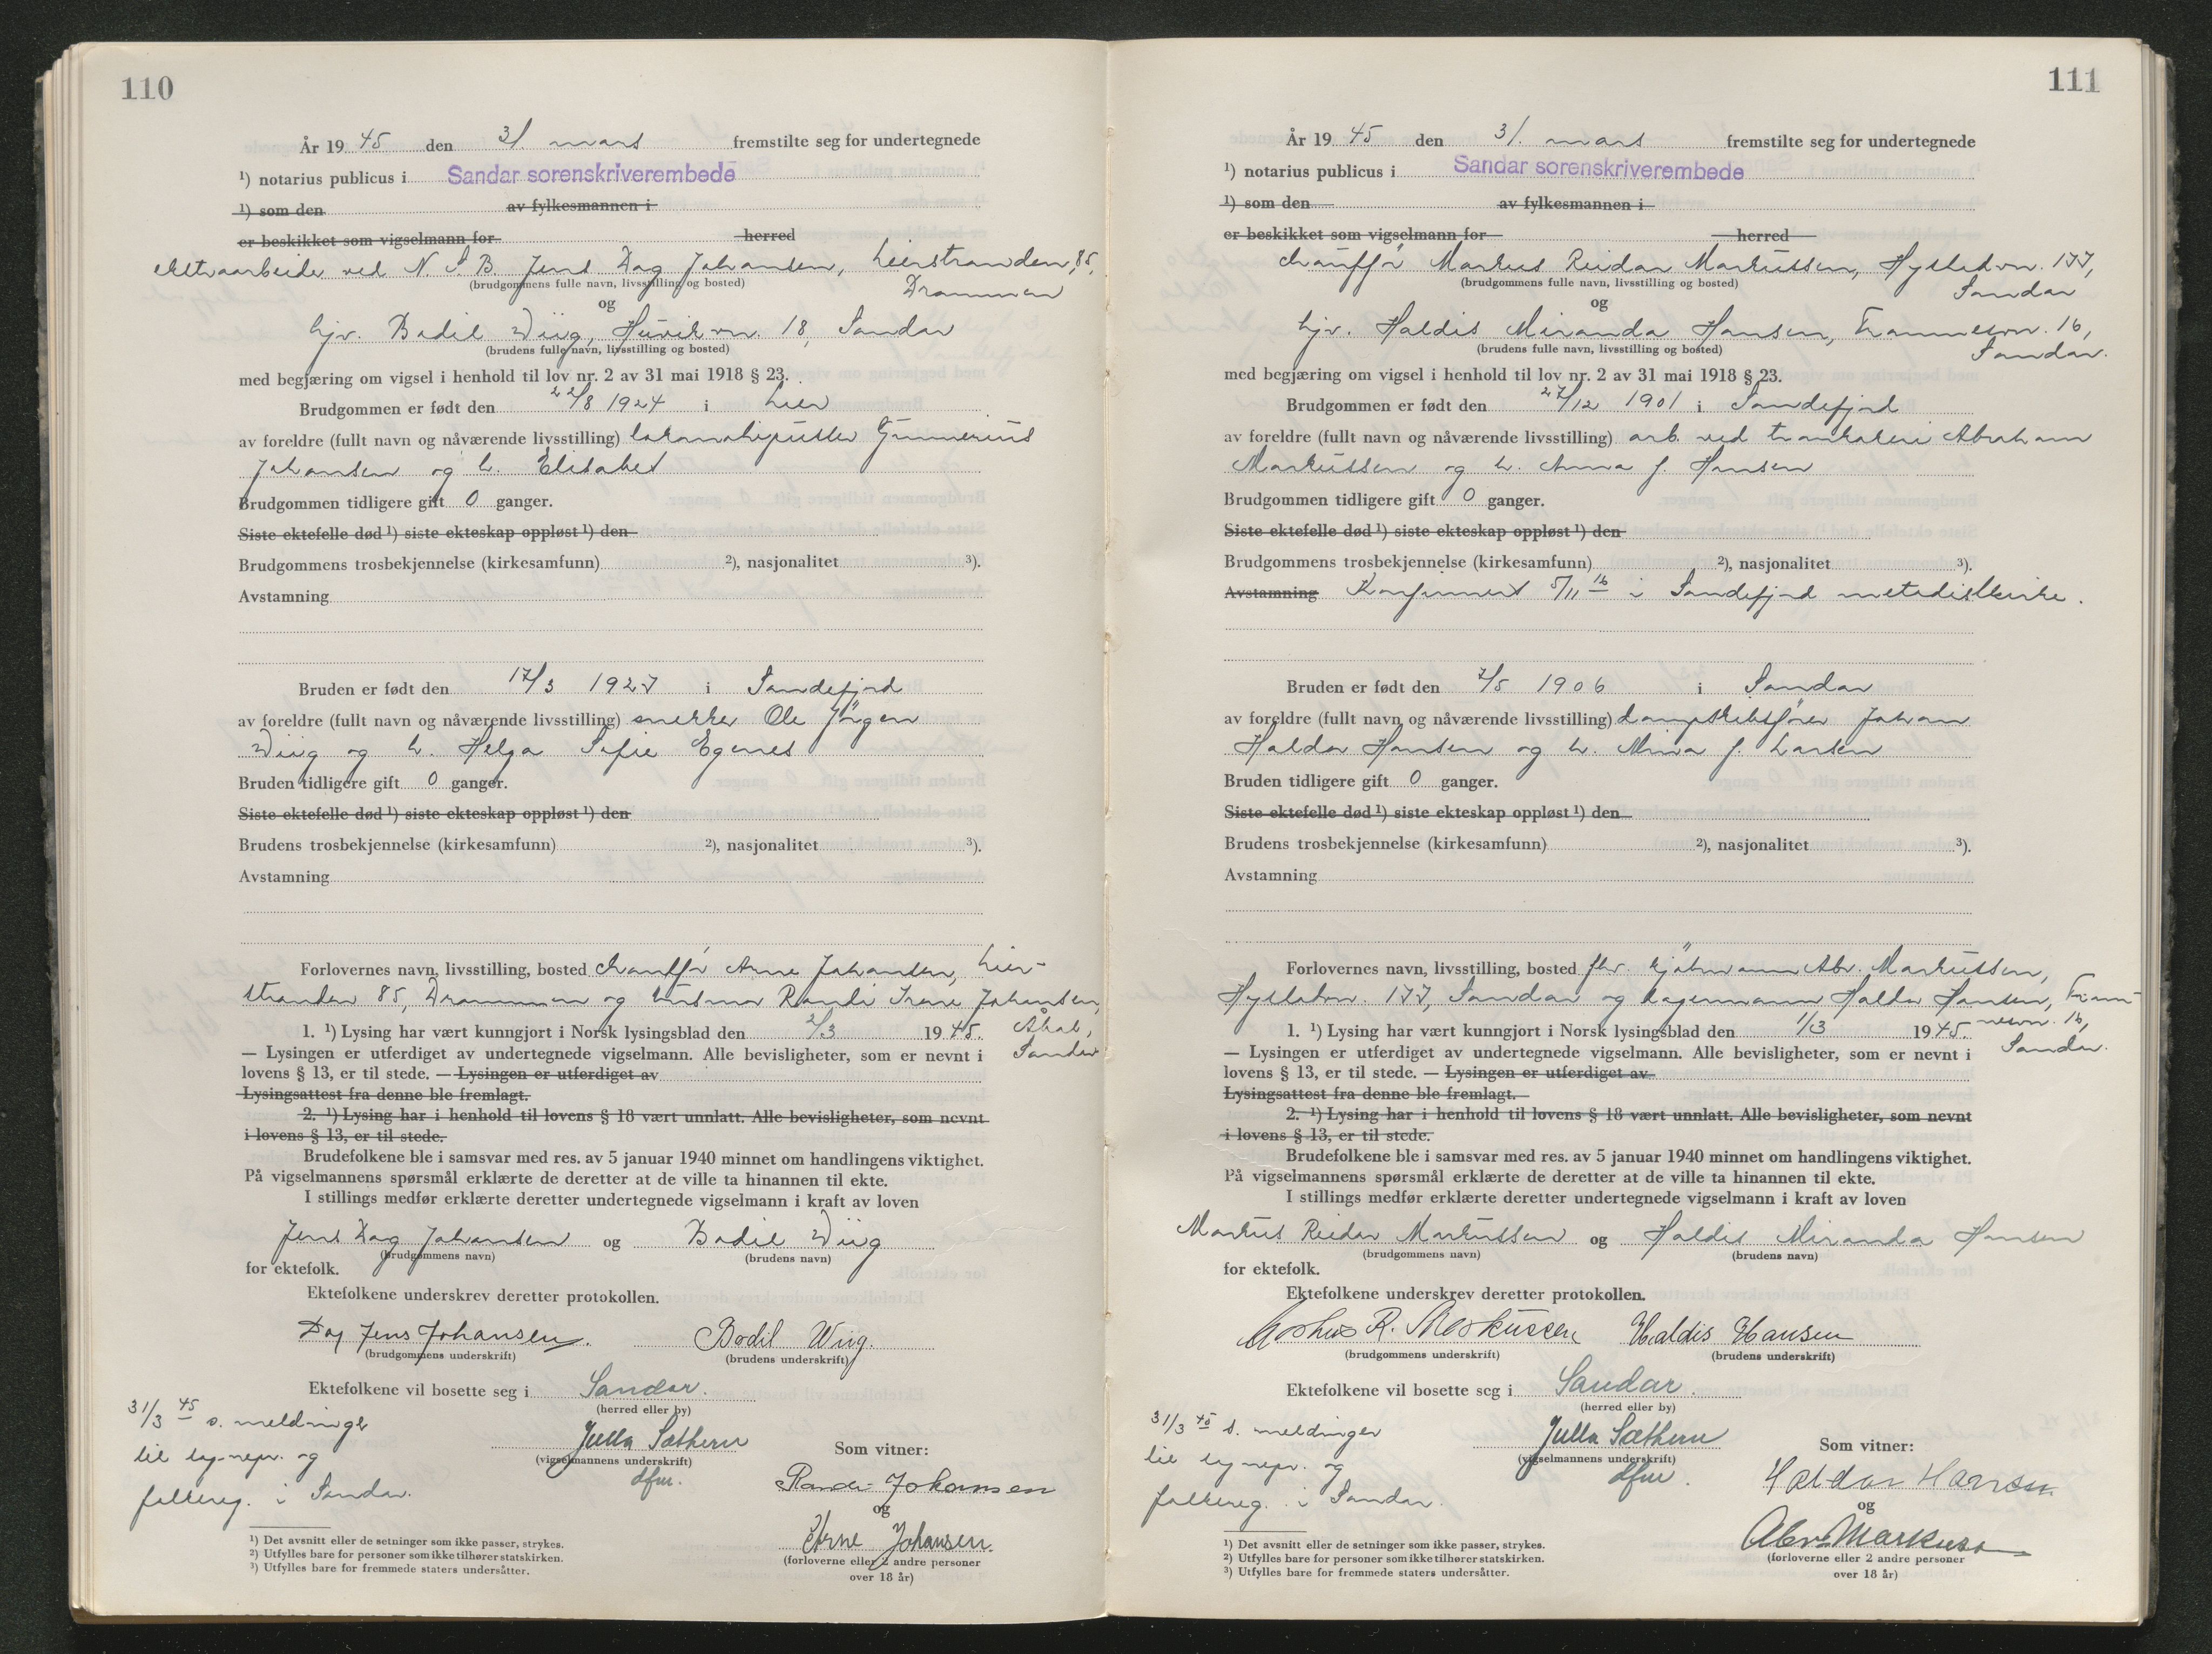 110
År 19 45 den 31. mars fremstilte seg for undertegnede
¹) notarius publicus i Sandar sorenskriverembede
¹) som den av fylkesmannen i
er beskikket som vigselmann for herred
ekstraarbeide ved N. S. B. Jens Dag Johansen, Lierstranden 85,
(brudgommens fulle navn, livsstilling og bosted)
Drammen
og
hjv. Bodil Wiig, Huvikvn. 18, Sandar
(brudens fulle navn, livsstilling og bosted)
med begjæring om vigsel i henhold til lov nr. 2 av 31 mai 1918 § 23.
Brudgommen er født den 22/8 1924 i Lier
av foreldre (fullt navn og nåværende livsstilling) lokomotivpusser Gunnerius
Johansen og h. Elisabet
Brudgommen tidligere gift 0 ganger.
Siste ektefelle død ¹) siste ekteskap oppløst ¹) den
Brudgommens trosbekjennelse (kirkesamfunn) ²), nasjonalitet ³).
Avstamning
Bruden er født den 17/3 1927 i Sandefjord
av foreldre (fullt navn og nåværende livsstilling) snekker Ole Jörgen
Wiig og h. Helga Sofie Egenes
Bruden tidligere gift 0 ganger.
Siste ektefelle død ¹) siste ekteskap oppløst ¹) den
Brudens trosbekjennelse (kirkesamfunn) ²), nasjonalitet ³).
Avstamning
Forlovernes navn, livsstilling, bosted chaufför Arne Johansen, Lier-
stranden 85, Drammen og husmor Randi Irene Johansen,
1. ¹) Lysing har vært kunngjort i Norsk lysingsblad den 2/3 1945.
Sandar
— Lysingen er utferdiget av undertegnede vigselmann. Alle bevisligheter, som er nevnt i
lovens § 13, er til stede. — Lysingen er utferdiget av
Lysingsattest fra denne ble fremlagt.
2. ¹) Lysing har i henhold til lovens § 18 vært unnlatt. Alle bevisligheter, som nevnt
i lovens § 13, er til stede.
Brudefolkene ble i samsvar med res. av 5 januar 1940 minnet om handlingens viktighet.
På vigselmannens spørsmål erklærte de deretter at de ville ta hinannen til ekte.
I stillings medfør erklærte deretter undertegnede vigselmann i kraft av loven
Jens Dag Johansen og Bodil Wiig
(brudgommens navn) (brudens navn)
for ektefolk.
Ektefolkene underskrev deretter protokollen.
Dag Jens Johansen. Bodil Wiig.
(brudgommens underskrift) (brudens underskrift)
Ektefolkene vil bosette seg i Sandar.
(herred eller by)
31/3 45 s. meldinger
til og
folkereg. i Sandar.
Julla Sæthern
(vigselmannens underskrift)
dfm.
Som vitner:
Randi Johansen
og
Arne Johansen.
(forloverne eller 2 andre personer
over 18 år)
¹) Det avsnitt eller de setninger som ikke passer, strykes.
²) Utfylles bare for personer som ikke tilhører statskirken.
³) Utfylles bare for fremmede staters undersåtter.
111
År 19 45 den 31. mars fremstilte seg for undertegnede
¹) notarius publicus i Sandar sorenskriverembede
¹) som den av fylkesmannen i
er beskikket som vigselmann for herred
chauffør Markus Reidar Markussen, Hystadvn. 177,
(brudgommens fulle navn, livsstilling og bosted)
Sandar
og
hjv. Haldis Miranda Hansen, Framnesvn. 16,
(brudens fulle navn, livsstilling og bosted)
Sandar.
med begjæring om vigsel i henhold til lov nr. 2 av 31 mai 1918 § 23.
Brudgommen er født den 27/12 1901 i Sandefjord
av foreldre (fullt navn og nåværende livsstilling) arb. ved trankokeri Abraham
Markussen og h. Anna J. Hansen
Brudgommen tidligere gift 0 ganger.
Siste ektefelle død ¹) siste ekteskap oppløst ¹) den
Brudgommens trosbekjennelse (kirkesamfunn) ²), nasjonalitet ³).
Avstamning Konfirmert 5/11 16 i Sandefjord metodistkirke.
Bruden er født den 7/5 1906 i Sandar
av foreldre (fullt navn og nåværende livsstilling) dampskibsfører Johan
Haldor Hansen og h. Mina J. Larsen
Bruden tidligere gift 0 ganger.
Siste ektefelle død ¹) siste ekteskap oppløst ¹) den
Brudens trosbekjennelse (kirkesamfunn) ²), nasjonalitet ³).
Avstamning
Forlovernes navn, livsstilling, bosted fhv. sjömann Abr. Markussen,
Hystadvn. 177, Sandar og lagermann Haldor Hansen, Fram-
nesvn. 16,
1. ¹) Lysing har vært kunngjort i Norsk lysingsblad den 1/3 1945.
Sandar.
— Lysingen er utferdiget av undertegnede vigselmann. Alle bevisligheter, som er nevnt i
lovens § 13, er til stede. — Lysingen er utferdiget av
Lysingsattest fra denne ble fremlagt.
2. ¹) Lysing har i henhold til lovens § 18 vært unnlatt. Alle bevisligheter, som nevnt
i lovens § 13, er til stede.
Brudefolkene ble i samsvar med res. av 5 januar 1940 minnet om handlingens viktighet.
På vigselmannens spørsmål erklærte de deretter at de ville ta hinannen til ekte.
I stillings medfør erklærte deretter undertegnede vigselmann i kraft av loven
Markus Reidar Markussen og Haldis Miranda Hansen
(brudgommens navn) (brudens navn)
for ektefolk.
Ektefolkene underskrev deretter protokollen.
Markus R. Markussen Haldis Hansen
(brudgommens underskrift) (brudens underskrift)
Ektefolkene vil bosette seg i Sandar.
(herred eller by)
31/3 45 s. meldinger
til og
folkereg. i Sandar.
Julla Sæthern
(vigselmannens underskrift)
dfm.
Som vitner:
Haldor Hansen
og
Abr. Markuss
(forloverne eller 2 andre personer
over 18 år)
¹) Det avsnitt eller de setninger som ikke passer, strykes.
²) Utfylles bare for personer som ikke tilhører statskirken.
³) Utfylles bare for fremmede staters undersåtter.